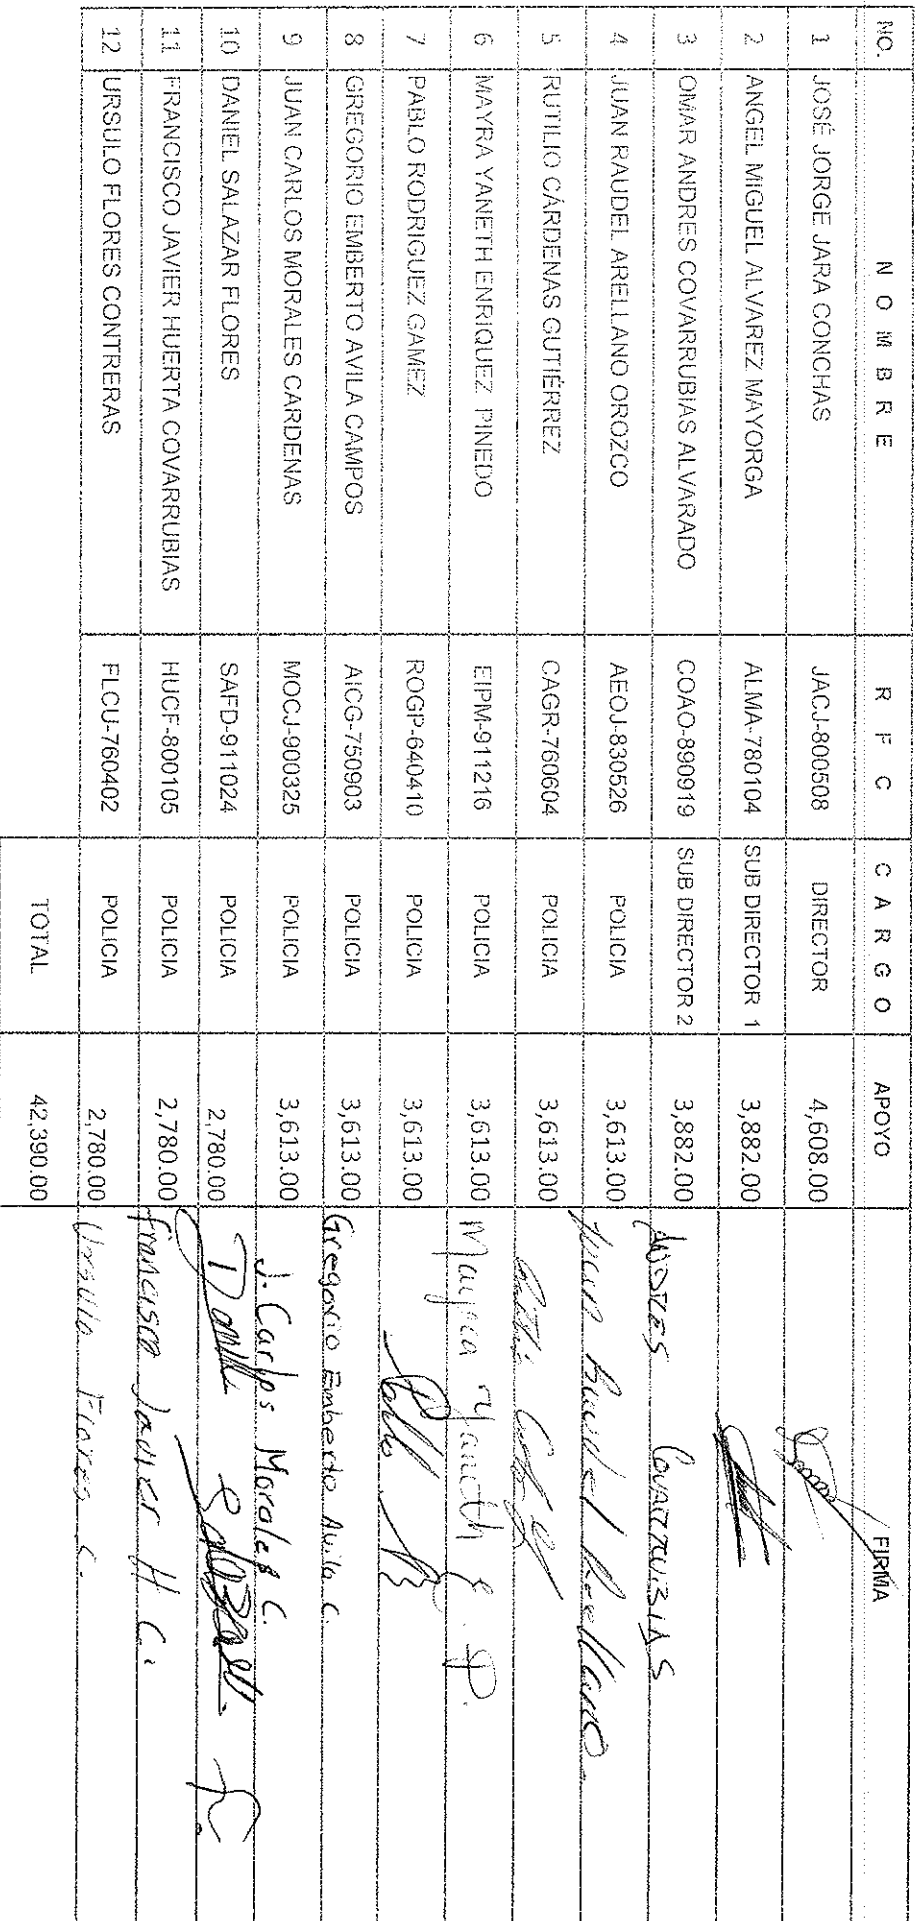 NO. N O M B R E R F C C A R G O APOYO FIRMA
1 JOSÉ JORGE JARA CONCHAS JACJ-800508 DIRECTOR 4,608.00
2 ANGEL MIGUEL ALVAREZ MAYORGA ALMA-780104 SUB DIRECTOR 1 3,882.00
3 OMAR ANDRES COVARRUBIAS ALVARADO COAO-890919 SUB DIRECTOR 2 3,882.00 ANDRES COVARRUBIAS
4 JUAN RAUDEL ARELLANO OROZCO AEOJ-830526 POLICIA 3,613.00 Juan Raudel Arellano
5 RUTILIO CÁRDENAS GUTIÉRREZ CAGR-760604 POLICIA 3,613.00
6 MAYRA YANETH ENRIQUEZ PINEDO EIPM-911216 POLICIA 3,613.00 Mayra Yaneth E. P.
7 PABLO RODRIGUEZ GAMEZ ROGP-640410 POLICIA 3,613.00 Pablo
8 GREGORIO EMBERTO AVILA CAMPOS AICG-750903 POLICIA 3,613.00 Gregorio Emberto Avila C.
9 JUAN CARLOS MORALES CARDENAS MOCJ-900325 POLICIA 3,613.00 J. Carlos Morales C.
10 DANIEL SALAZAR FLORES SAFD-911024 POLICIA 2,780.00 Daniel Salazar F.
11 FRANCISCO JAVIER HUERTA COVARRUBIAS HUCF-800105 POLICIA 2,780.00 Francisco Javier H C.
12 URSULO FLORES CONTRERAS FLCU-760402 POLICIA 2,780.00 Ursulo Flores C.
TOTAL 42,390.00